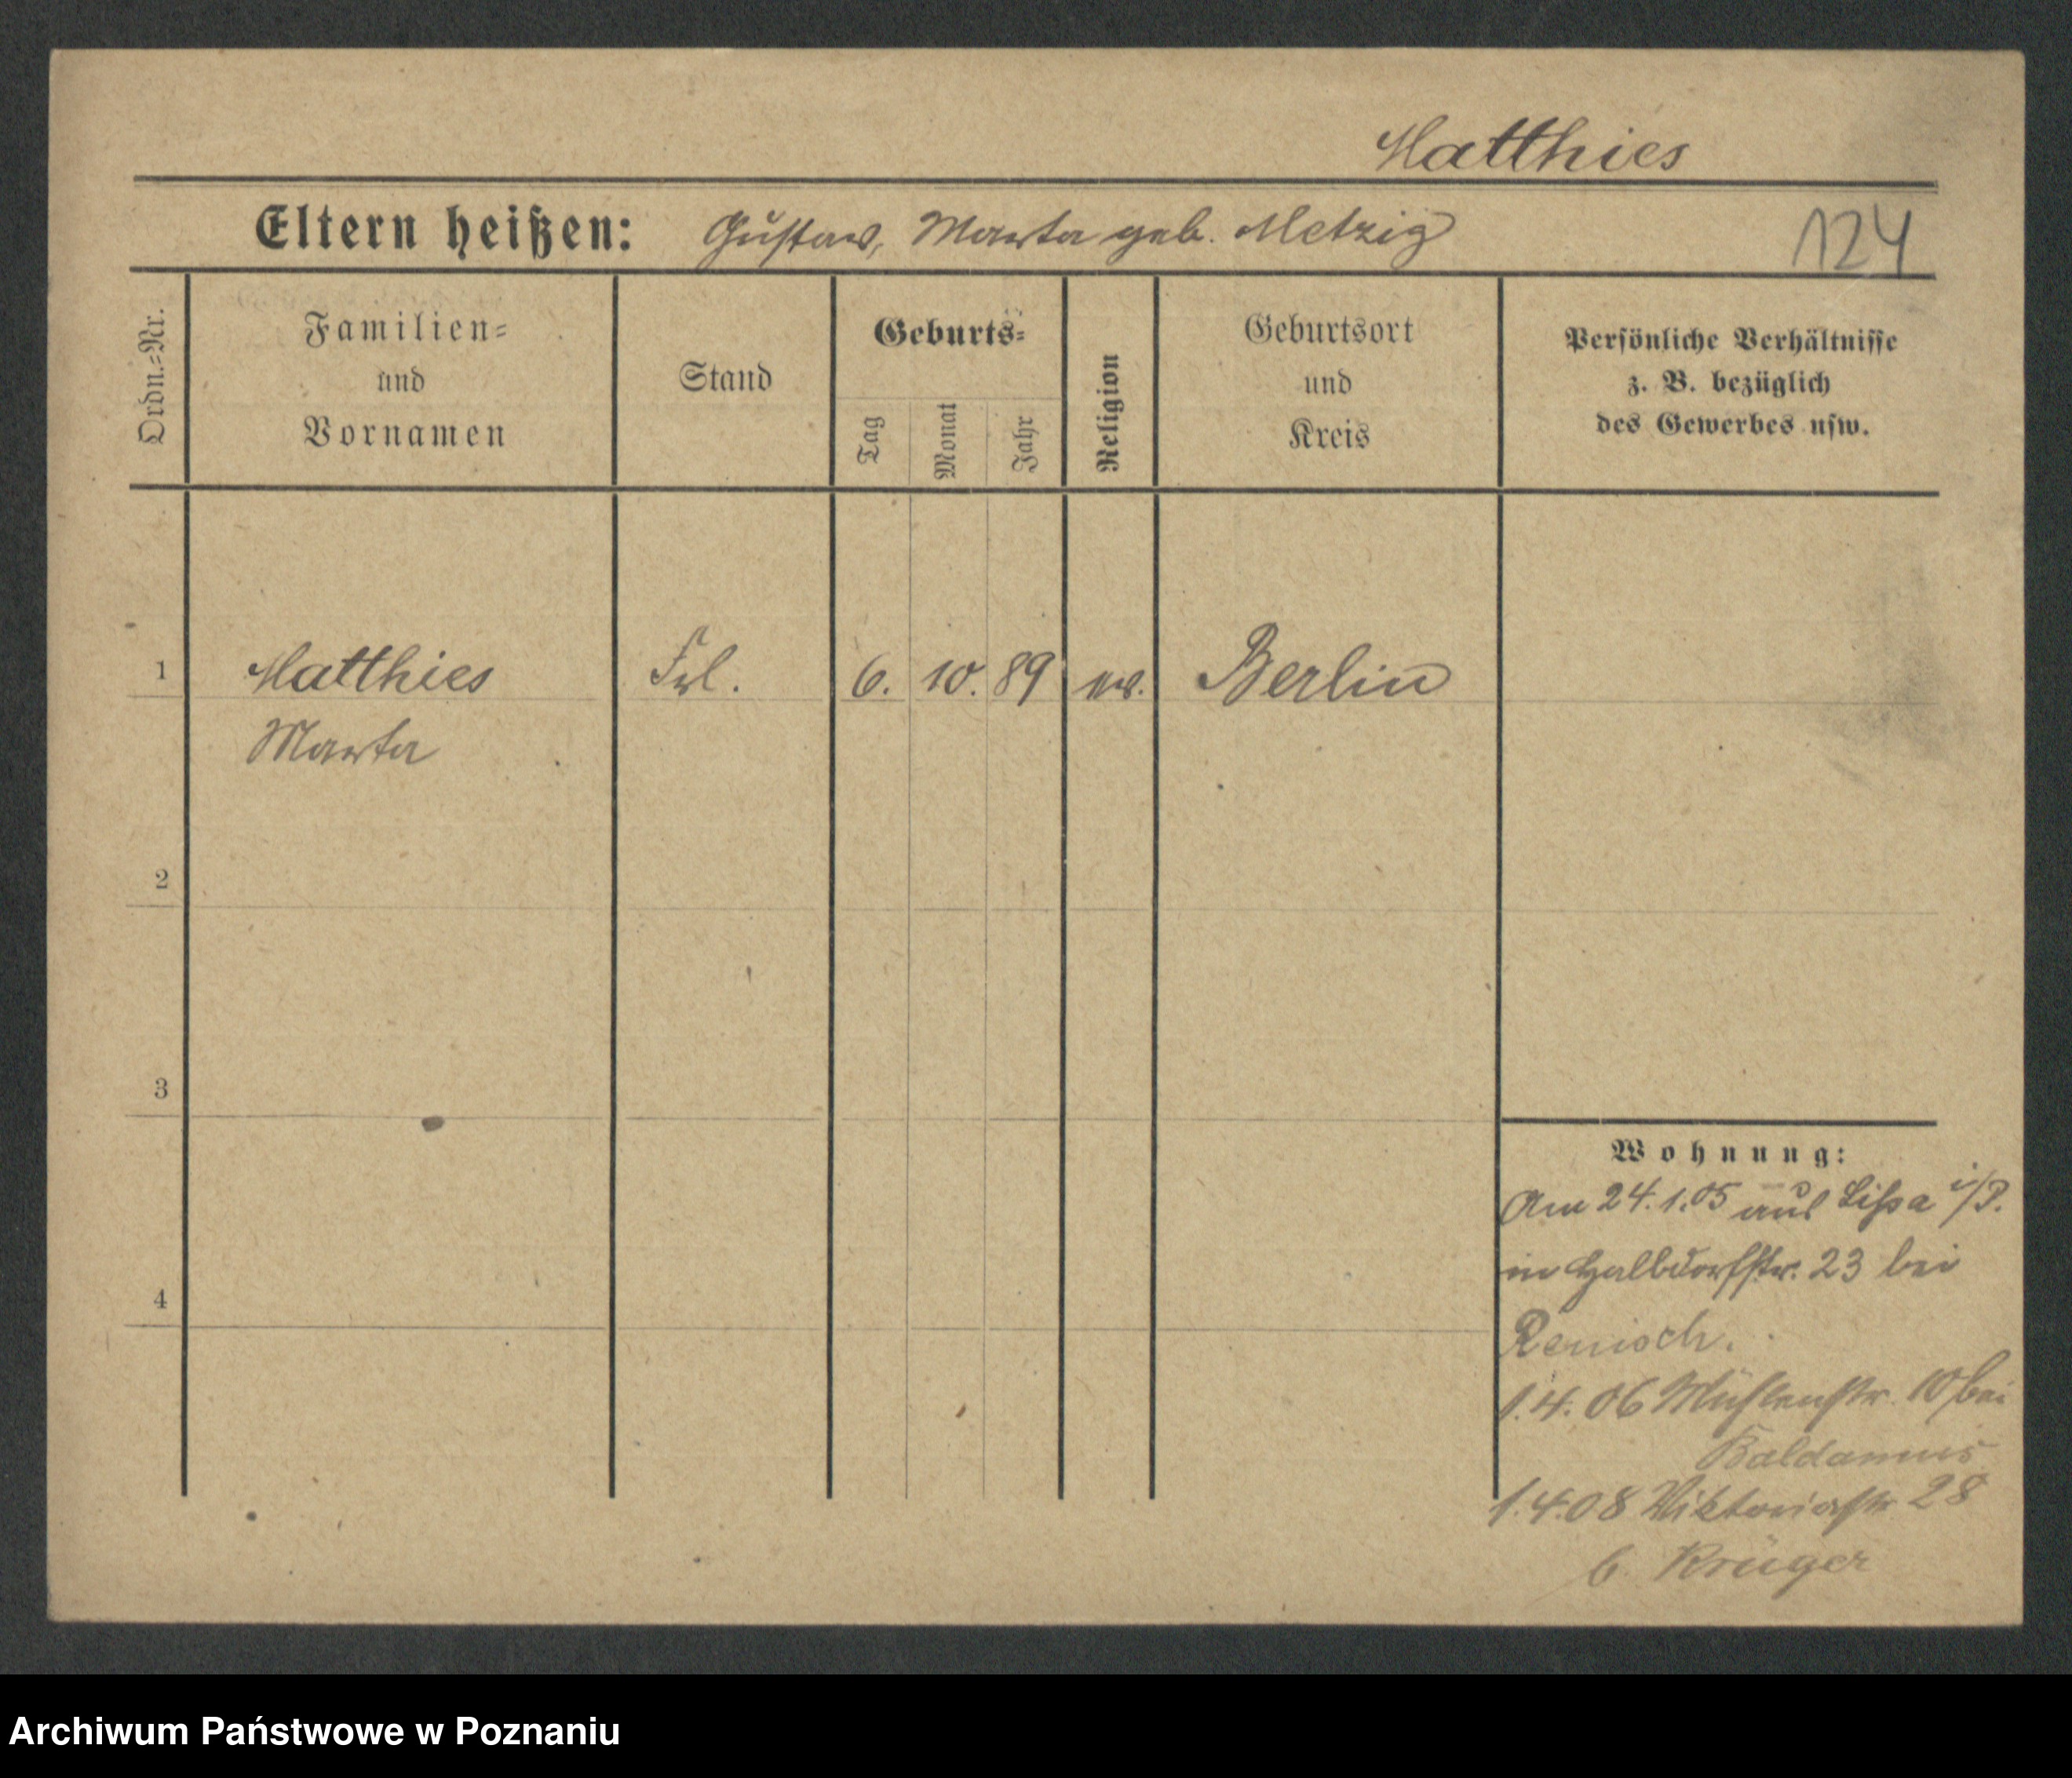 Matthies
Eltern heißen: Gustav, Marta geb. Metzig
124
Ordn.=Nr.
Familien=
und
Vornamen
Stand
Geburts=
Tag
Monat
Jahr
Religion
Geburtsort
und
Kreis
Persönliche Verhältnisse
z. B. bezüglich
des Gewerbes usw.
1 Matthies Frl. 6. 10. 89 ev. Berlin
Marta
2
3
4
Wohnung:
Am 24.1.05 aus Lissa i/P.
in Halbdorfstr. 23 bei
Remisch.
1.4.06 Mühlenstr. 10 bei
Baldamus
1.4.08 Viktoriastr 28
b. Krüger
Archiwum Państwowe w Poznaniu